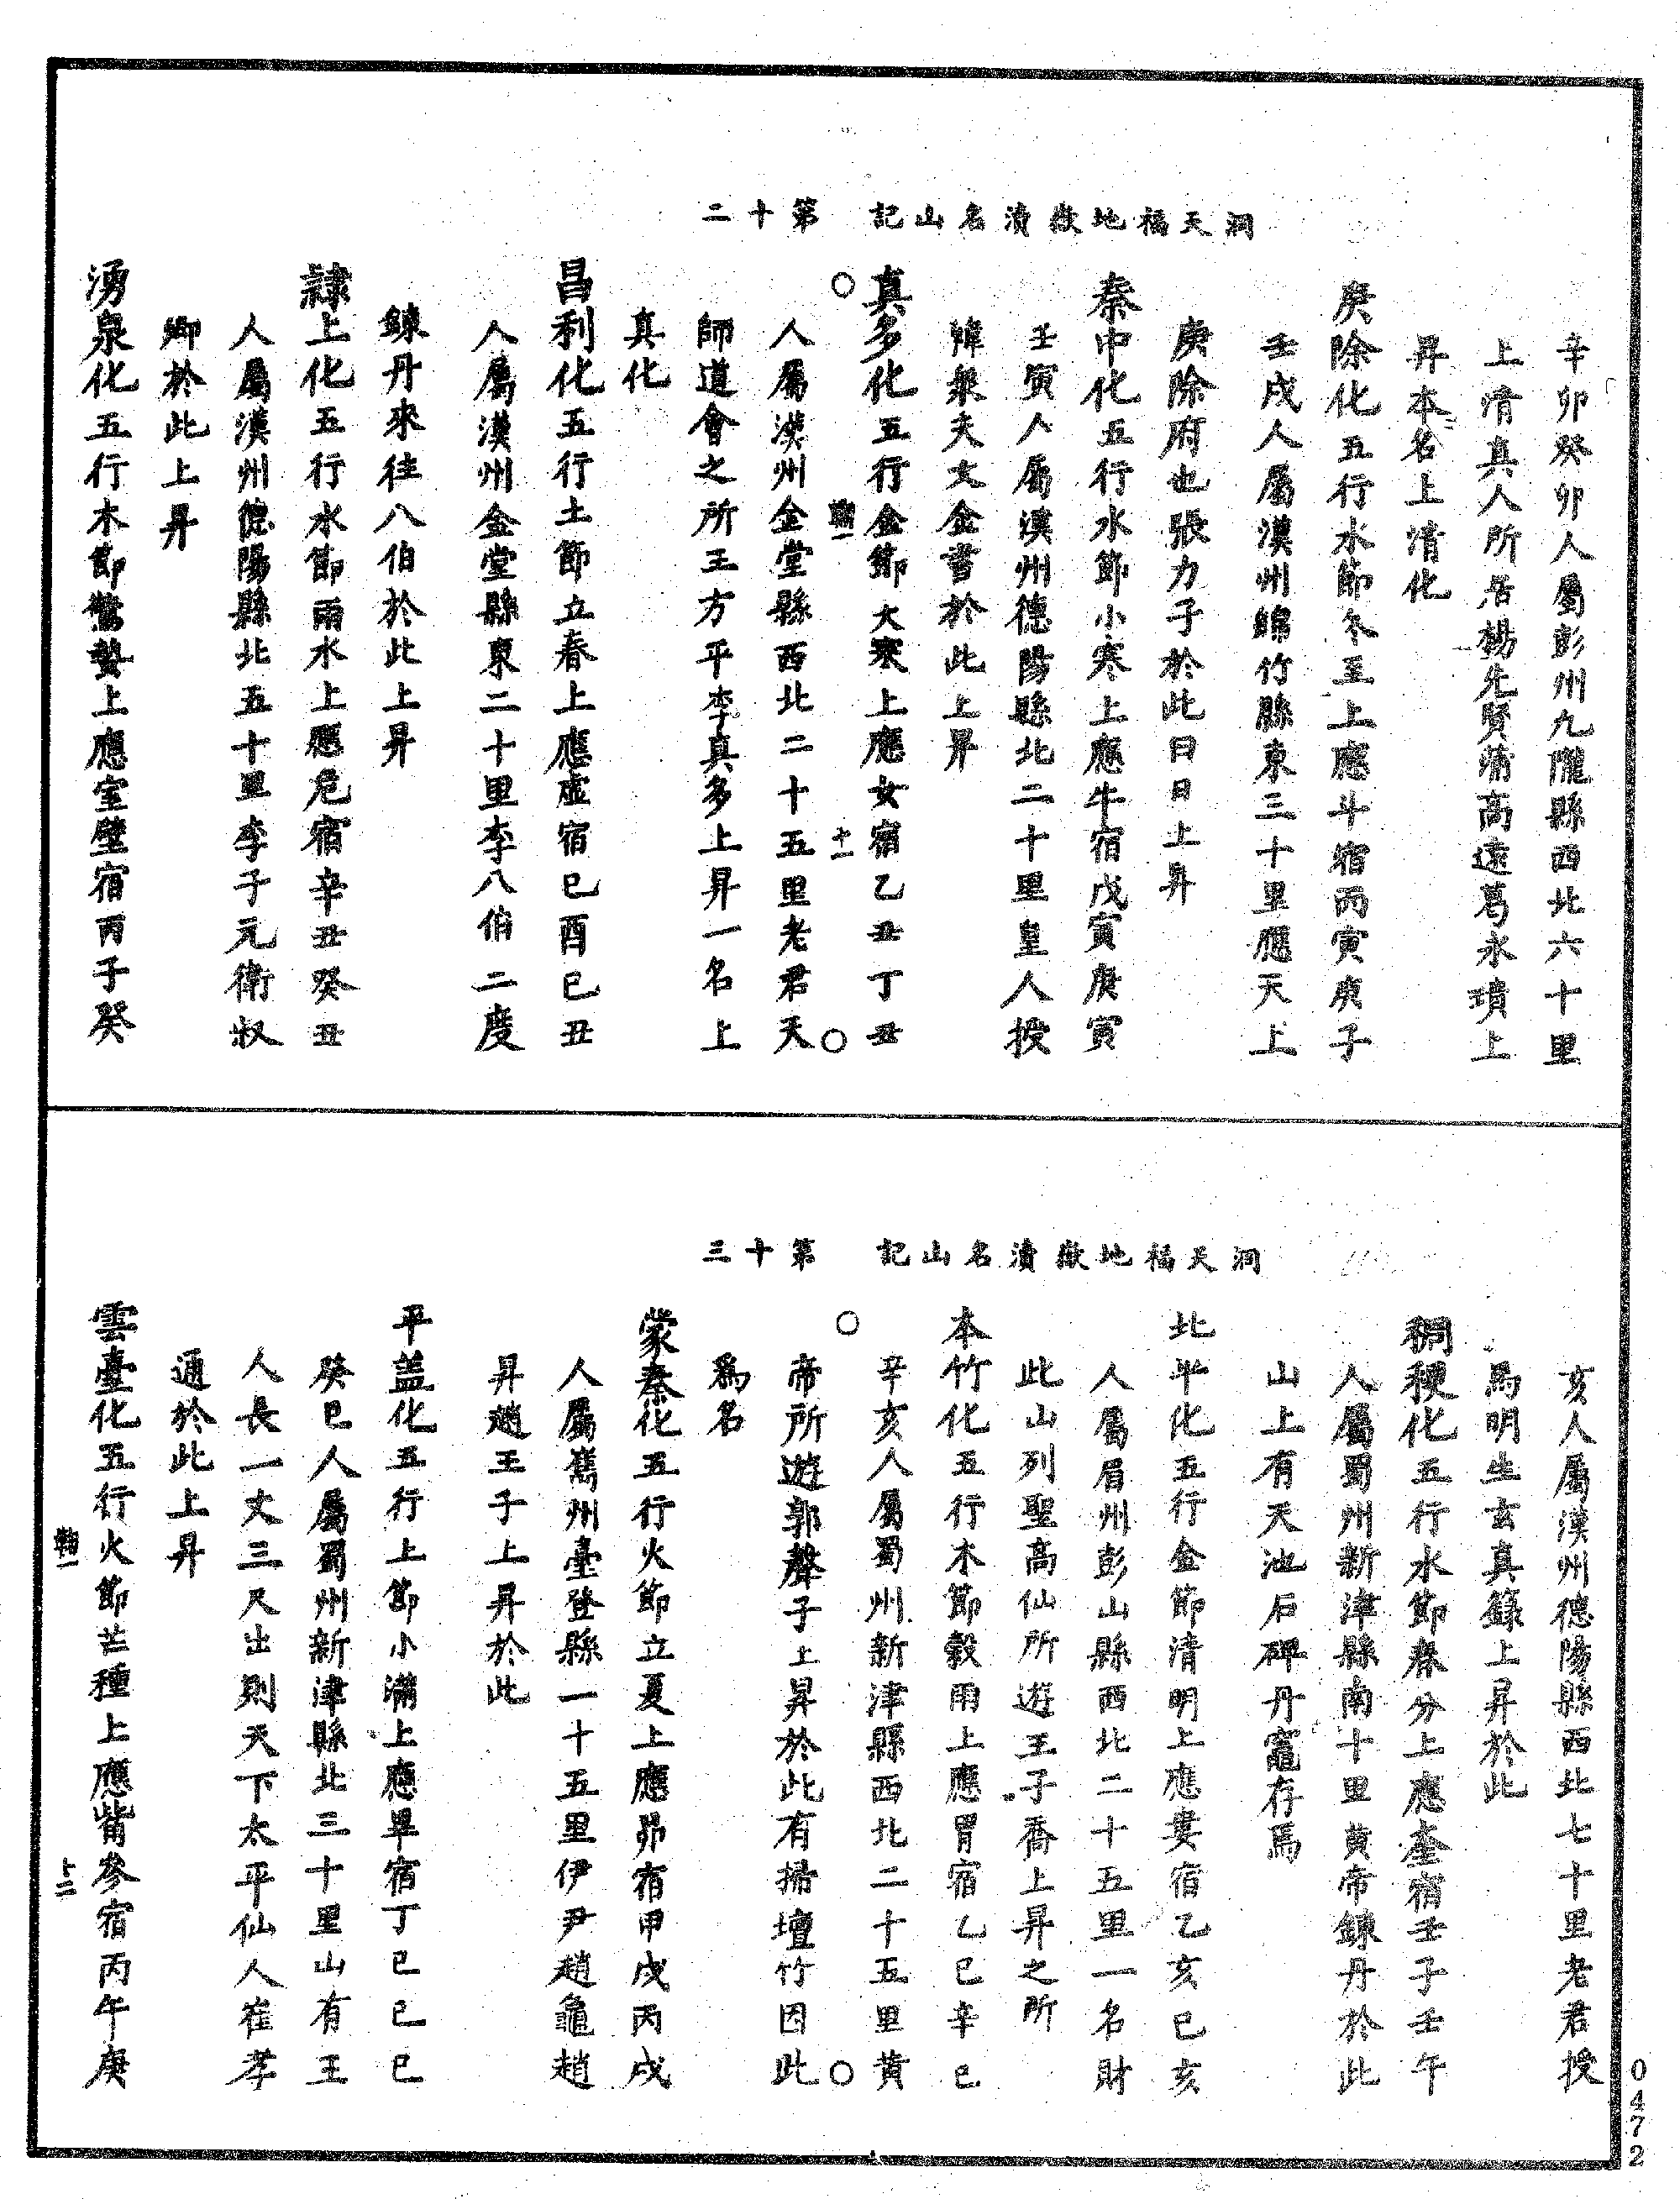 洞天福地嶽瀆名山記　第十二
辛卯癸卯人屬彭州九隴縣西北六十里
上清真人所居楊先賢蒲高遠葛永璝上
昇本名上清化
庚除化五行水節冬至上應斗宿丙寅庚子
壬戌人屬漢州綿竹縣東三十里應天上
庚除府也張力子於此日日上昇
秦中化五行水節小寒上應牛宿戊寅庚寅
壬寅人屬漢州德陽縣北二十里皇人授
韓衆夫文金書於此上昇
真多化五行金節大寒上應女宿乙丑丁丑
鞠一　十一
人屬漢州金堂縣西北二十五里老君天
師道會之所王方平李真多上昇一名上
真化
昌利化五行土節立春上應虛宿已酉巳丑
人屬漢州金堂縣東二十里李八伯二度
鍊丹來往八伯於此上昇
隷上化五行水節雨水上應危宿辛丑癸丑
人屬漢州德陽縣北五十里李子元衛叔
卿於此上昇
湧泉化五行木節驚蟄上應室壁宿丙子癸
洞天福地嶽瀆名山記　第十三
亥人屬漢州德陽縣西北七十里老君授
馬明生玄真籙上昇於此
稠稉化五行水節春分上應奎宿壬子壬午
人屬蜀州新津縣南十里黄帝鍊丹於此
山上有天池石碑丹竈存焉
北平化五行金節清明上應婁宿乙亥巳亥
人屬眉州彭山縣西北二十五里一名財
此山列聖高仙所遊王子喬上昇之所
本竹化五行木節穀雨上應胃宿乙巳辛巳
辛亥人屬蜀州新津縣西北二十五里黄
帝所遊郭聲子上昇於此有掃壇竹因此
爲名
蒙秦化五行火節立夏上應昴宿甲戌丙戌
人屬嶲州臺登縣一十五里伊尹趙龜趙
昇趙王子上昇於此
平盖化五行上節小滿上應畢宿丁巳巳巳
癸巳人屬蜀州新津縣北三十里山有王
人長一丈三尺出則天下太平仙人崔孝
通於此上昇
雲臺化五行火節芒種上應觜參宿丙午庚
鞠一　十二
0472